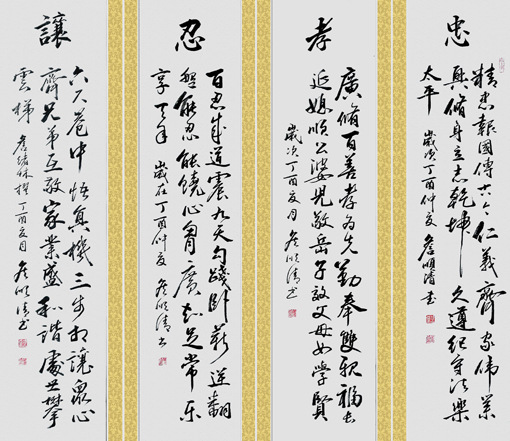 忠
精忠報國傳古今仁義齊家偉業
興脩身立志乾坤久遵紀守法樂
太平 歲次丁酉仲夏 詹順清書
孝
廣脩百善孝為先勤奉雙親福壽
延媳順公婆兒敬岳子敬父母女學賢
歲次丁酉夏月 詹順清書
忍
百忍成道震九天勾踐卧薪逆翻
盤能忍能饒心胸廣知足常樂
享天年 歲在丁酉仲夏 詹順清書
讓
六尺巷中悟真機三步相讓眾心
齊兄弟互敬家業盛和諧處世攀
雲梯 丁酉夏月 詹順清書